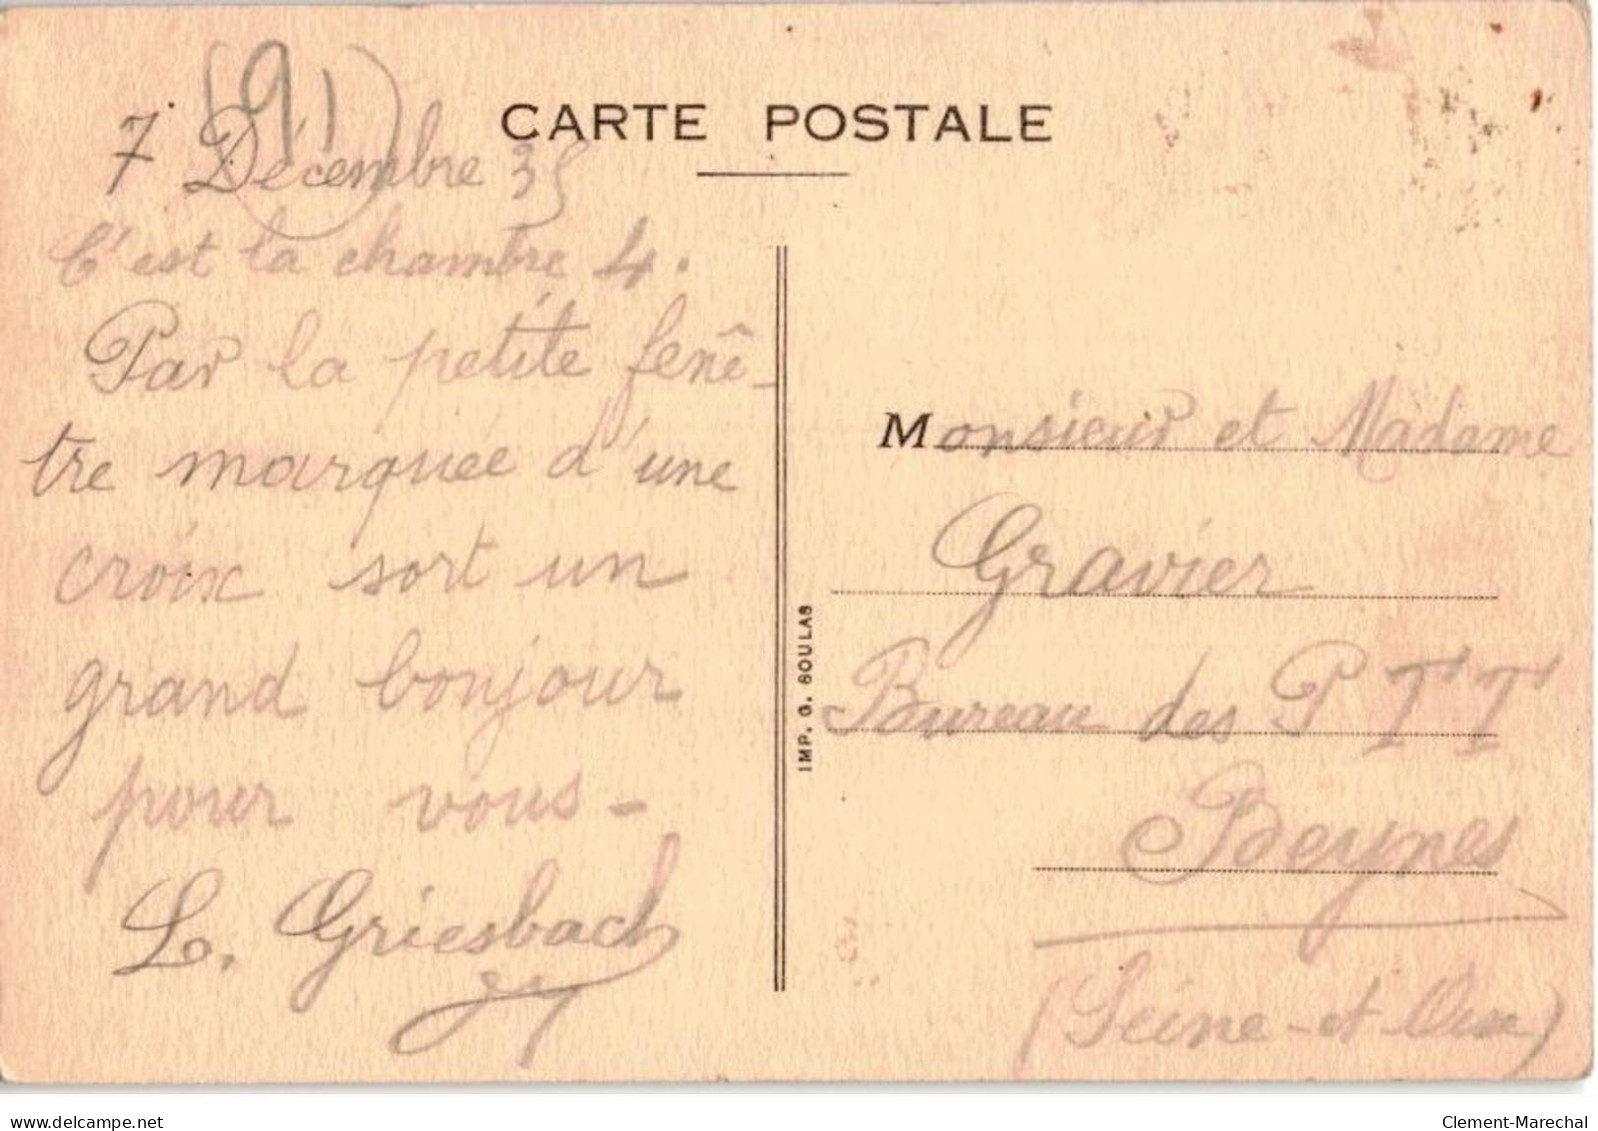 (91)
CARTE POSTALE
7 Décembre 35
C'est la chambre 4.
Par la petite fenê-
tre marquée d'une
croix sort un
grand bonjour
pour vous -
L. Griesbach
IMP. G. SOULAS
Monsieur et Madame
Gravier
Bureau des P T T
Beynes
(Seine-et Oise)
delcampe.net
Clement-Marechal